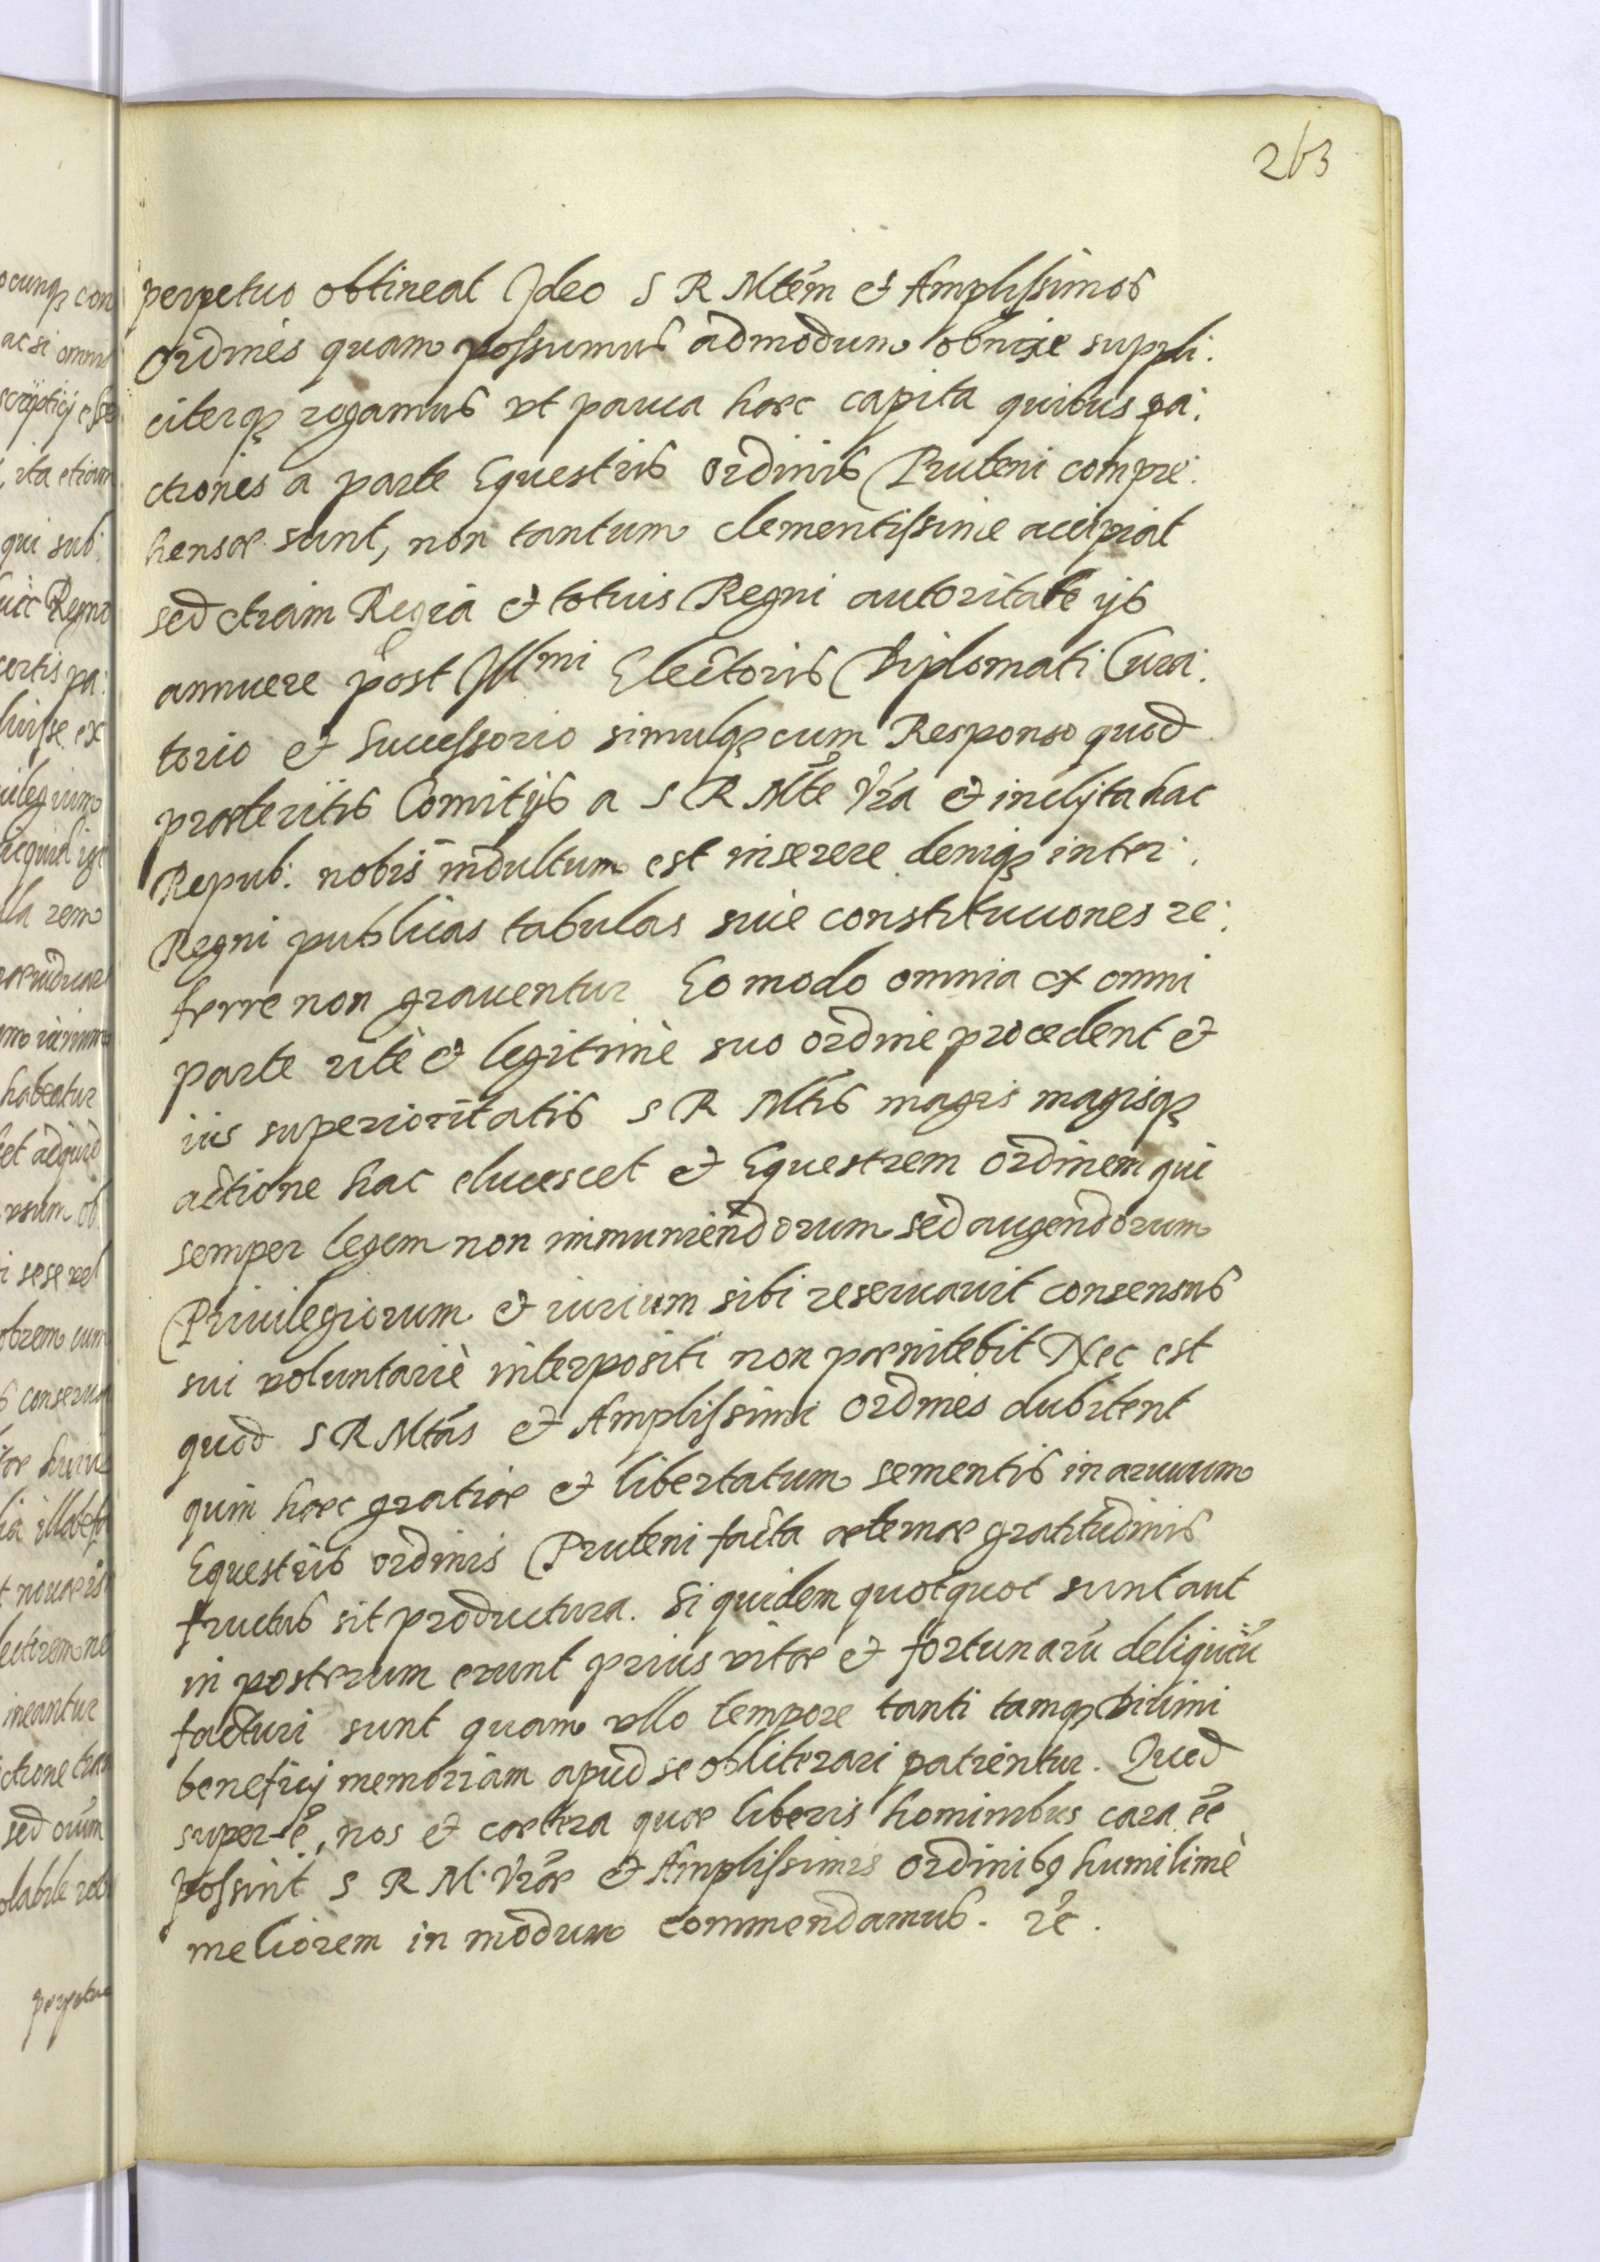 263
perpetuo obtineat Ideo S R Mtem et Amplissimos
Ordines quam possumus admodum obnixe suppli:
citerq rogamus vt pauca haec capita quibus pa:
ctiones a parte Equestris Ordinis Pruteni compre:
hensae sunt, non tantum clementissime accipiat
sed etiam Regia et totius Regni autoritate ijs
annuere post Illmi Electoris Diplomati Cura:
torio et Successorio simulq cum Responso quod
praeteritis Comitijs a S R Mte Vra et inclyta hac
Repub: nobis indultum est inserere deniq inter
Regni publicas tabulas siue constitutiones re:
ferre non grauentur Eo modo omnia ex omni
parte ritè et legitimè suo ordine procedent et
ius superioritatis S R Mtis magis magisq
actione hac elucescet et Equestrem ordinem qui
semper legem non imminuendorum sed augendorum
Priuilegiorum et iurium sibi reseruauit consensus
sui voluntariè interpositi non paenitebit Nec est
quod S R Mtas et Amplissimi Ordines dubitent
quin haec gratiae et libertatum sementis in aruum
Equestris ordinis Pruteni facta aeternae gratitudinis
fructus sit productura. Si quidem quotquot sunt aut
in posterum erunt prius vitae et fortunarū deliquiū
facturi sunt quam vllo tempore tanti tamq diuini
beneficij memoriam apud se obliterari patientur. Quod
super ē, nos et caetera quae liberis hominibus cara ēē
possint S R M. Vrae et Amplissimis ordinibq humilimè
meliorem in modum commendamus. rc.
ocunq con
ac si omni
scriptitij esse
ita etiam
qui sub:
Regno
certis pa:
huisse ex
uilegium
lla rem
habeatur
et adquid
vsum ob
i sese vel
obrem cum
conserua
ineantur
ctione tran
sed
perpetuo